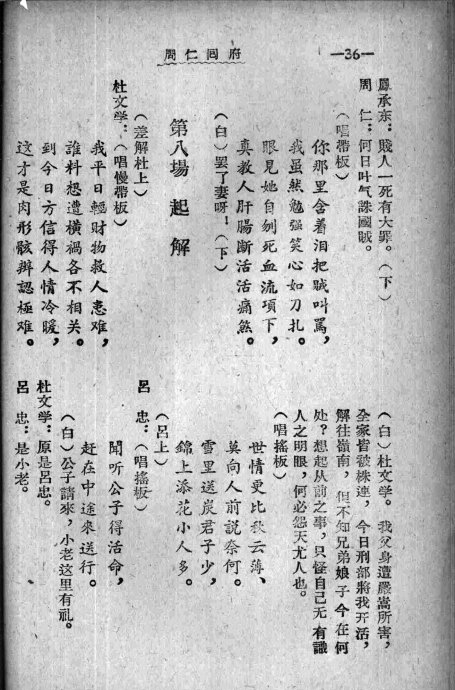 周仁囘府
—36—
鳳承东：賤人一死有大罪。（下）
周　仁：何日吐气誅國賊。
（唱帶板）
你那里含着泪把賊叫罵，
我虽然勉强笑心如刀扎。
眼見她自刎死血流項下，
真教人肝腸断活活痛煞。
（白）罢了妻呀！（下）
第八場　起解
（差解杜上）
杜文学：（唱慢帶板）
我平日輕財物救人患难，
誰料想遭横禍各不相关。
到今日方信得人情冷暖，
这才是肉形骸辨認極难。
（白）杜文学。我父身遭嚴嵩所害，
全家皆被株連，今日刑部將我开活，
解往嶺南，但不知兄弟娘子今在何
处？想起从前之事，只怪自己无有識
人之明眼，何必怨天尤人也。
（唱搖板）
世情更比秋云薄、
莫向人前說奈何。
雪里送炭君子少，
錦上添花小人多。
（呂上）
呂　忠：（唱搖板）
聞听公子得活命，
赶在中途來送行。
（白）公子請來，小老这里有礼。
杜文学：原是呂忠。
呂　忠：是小老。